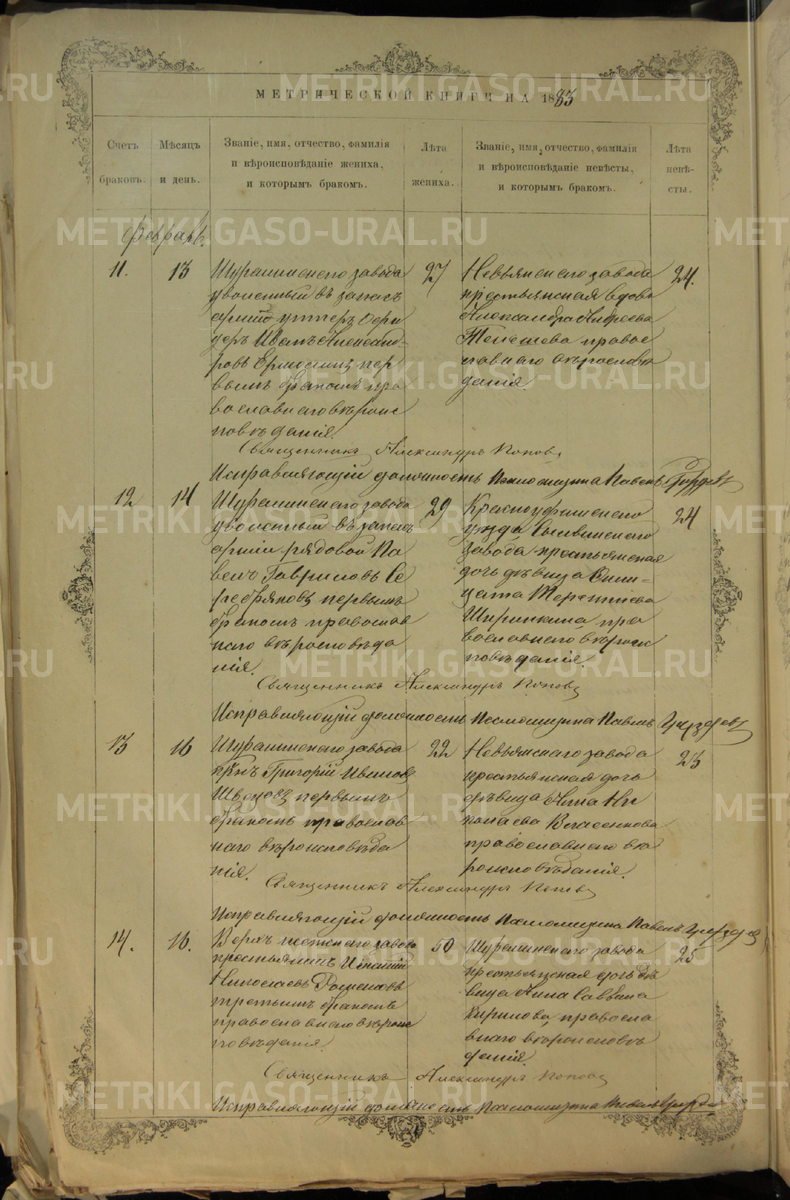 МЕТРИЧЕСКОЙ КНИГИ НА 1883
Счетъ браковъ.
Мѣсяцъ и день.
Званіе, имя, отчество, фамилія
и вѣроисповѣданіе жениха,
и которымъ бракомъ.
Лѣта жениха.
Званіе, имя, отчество, фамилія
и вѣроисповѣданіе невѣсты,
и которымъ бракомъ.
Лѣта невѣ-
сты.
Февраль
11.
13
Шуралинскаго завода
уволенный въ запасъ
арміи унтеръ офи
церъ Иванъ Александ
ровъ пер
вымъ бракомъ пра
вославнаго вѣроис
повѣданія.
27
Невьянскаго завода
крестьянская вдова
Александра Андреева
правос
лавнаго вѣроиспо
данія.
24.
Священникъ Александръ Поповъ
Исправляющій должность псаломщика Павелъ
12
14
Шуралинскаго завода
уволенный въ запасъ
арміи рядовой Па
велъ Гавриловъ Се
ребряковъ первымъ
бракомъ православ
наго вѣроисповѣда
нія.
29
Красноуфимскаго
уѣзда Сылвинскаго
завода крестьянская
дочь дѣвица
Терентіева
Ширинкина пра
вославнаго вѣроис
повѣданія.
24
Священникъ Александръ Поповъ
Исправляющій должность псаломщика Павелъ
13
16
Шуралинскаго завода
Григорій Ивановъ
Швецовъ первымъ
бракомъ православ
наго вѣроисповѣда
нія.
22
Невьянскаго завода
крестьянская дочь
дѣвица Анна Ни
колаева
православнаго вѣ
роисповѣданія.
23
Священникъ Александръ Поповъ
Исправляющій должность псаломщика Павелъ
14.
16.
Верхъ завода
крестьянинъ
Николаевъ
третьимъ бракомъ
православнаго вѣроис
повѣданія.
50
Шуралинскаго завода
крестьянская дочь дѣ
вица Анна Саввина
Кирилова правосла
внаго вѣроисповѣ
данія.
25
Священникъ Александръ Поповъ
Исправляющій должность псаломщика Павелъ
METRIKI.GASO-URAL.RU